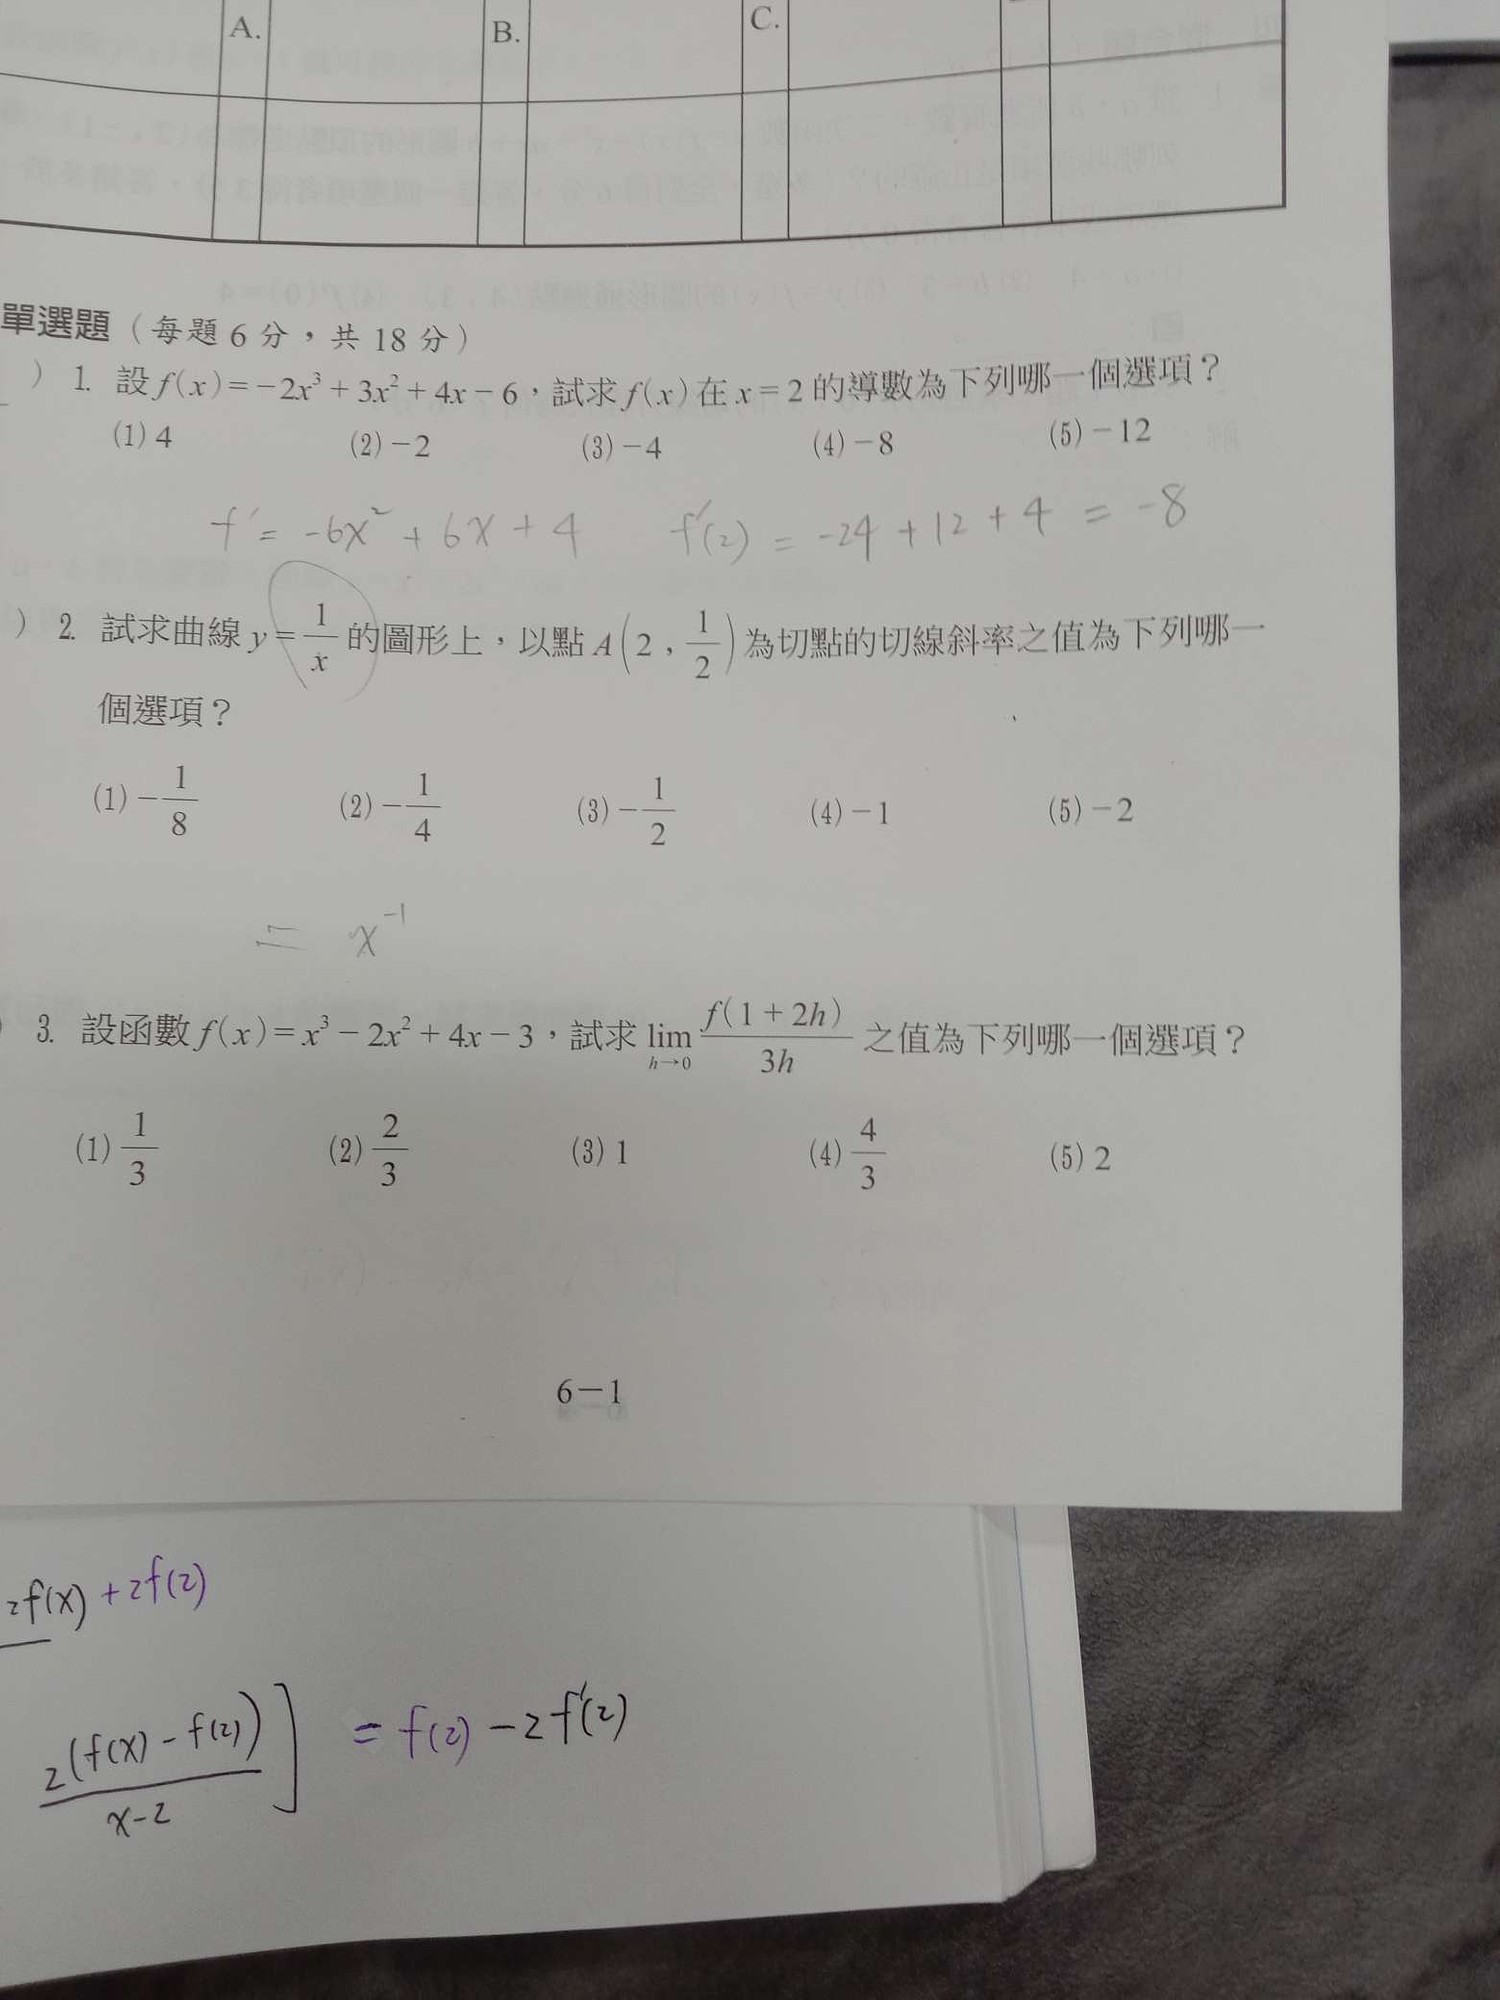 A. B. C.
單選題（每題 6 分，共 18 分）
) 1. 設 f(x)=−2x³+3x²+4x−6，試求 f(x) 在 x=2 的導數為下列哪一個選項？
(1) 4 (2) −2 (3) −4 (4) −8 (5) −12
f′= −6x² + 6x + 4 f′(2) = −24 + 12 + 4 = −8
) 2. 試求曲線 y=1/x 的圖形上，以點 A(2, 1/2) 為切點的切線斜率之值為下列哪一
個選項？
(1) −1/8 (2) −1/4 (3) −1/2 (4) −1 (5) −2
= x⁻¹
) 3. 設函數 f(x)=x³−2x²+4x−3，試求 lim h→0 f(1+2h)/3h 之值為下列哪一個選項？
(1) 1/3 (2) 2/3 (3) 1 (4) 4/3 (5) 2
6−1
2f(x) + 2f(2)
2(f(x) − f(2))/x−2 ] = f(2) − 2f′(2)